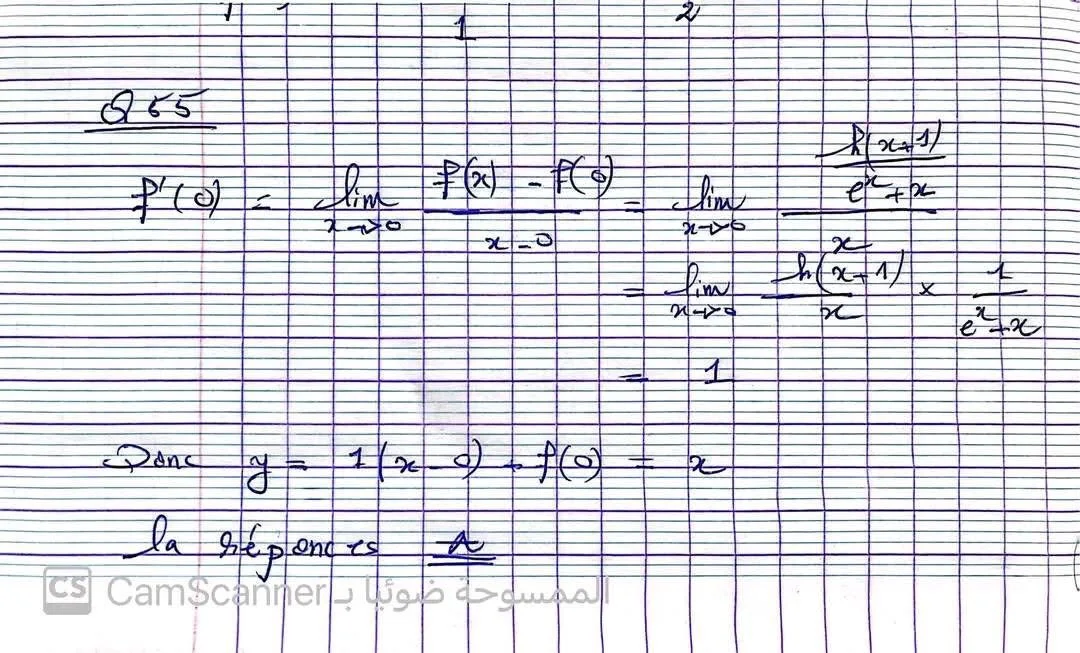 1 2
Q 55
f'(0) = lim x→0 (f(x) - f(0))/(x - 0) = lim x→0 (h(x+1)/(e^x + x))/x
= lim x→0 h(x+1)/x × 1/(e^x + x)
= 1
Donc y = 1(x - 0) + f(0) = x
la réponc es A
CS CamScanner الممسوحة ضوئيا بـ